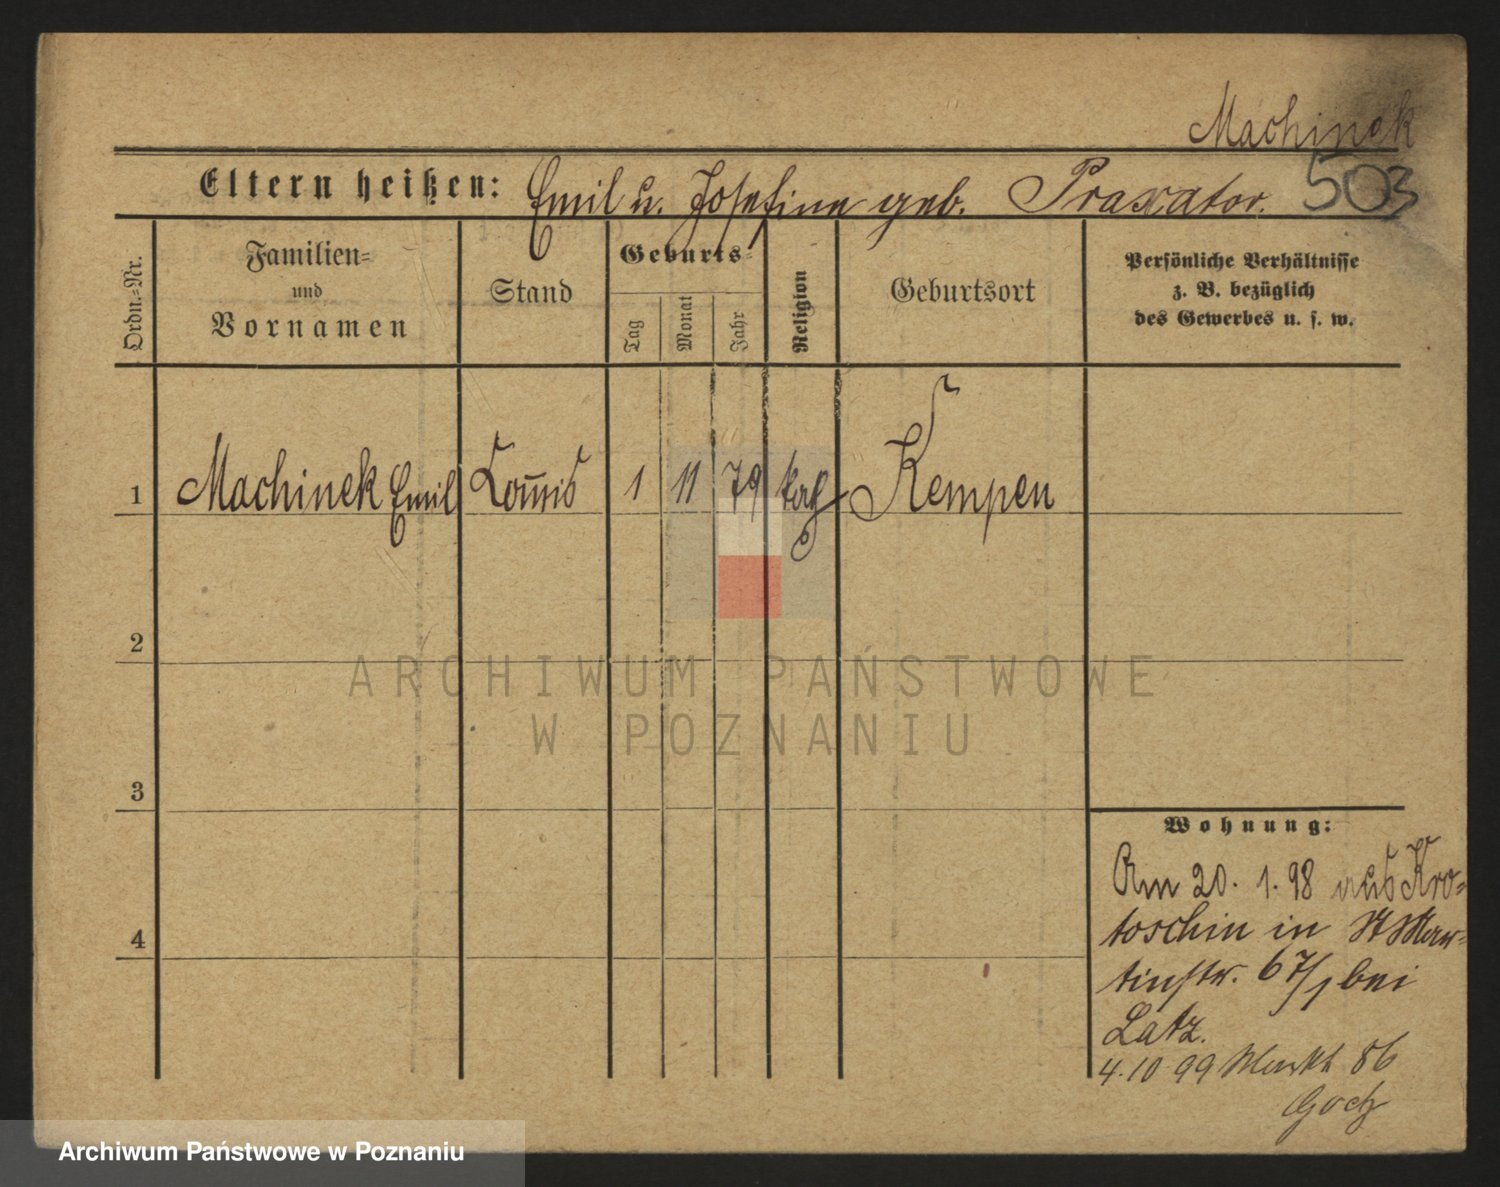 Machinek
503
Eltern heißen: Emil u. Josefine geb. Praxator.
Ordn.=Nr.
Familien=
und
Vornamen
Stand
Geburts=
Tag
Monat
Jahr
Religion
Geburtsort
Persönliche Verhältnisse
z. B. bezüglich
des Gewerbes u. s. w.
1 Machinek Emil Commis 1 11 79 kath Kempen
2
3
4
Wohnung:
Am 20. 1. 98 aus Kro=
toschin in St Mar=
tinstr. 67/1 bei
Latz.
4.10 99 Markt 86
ARCHIWUM PAŃSTWOWE
W POZNANIU
Archiwum Państwowe w Poznaniu